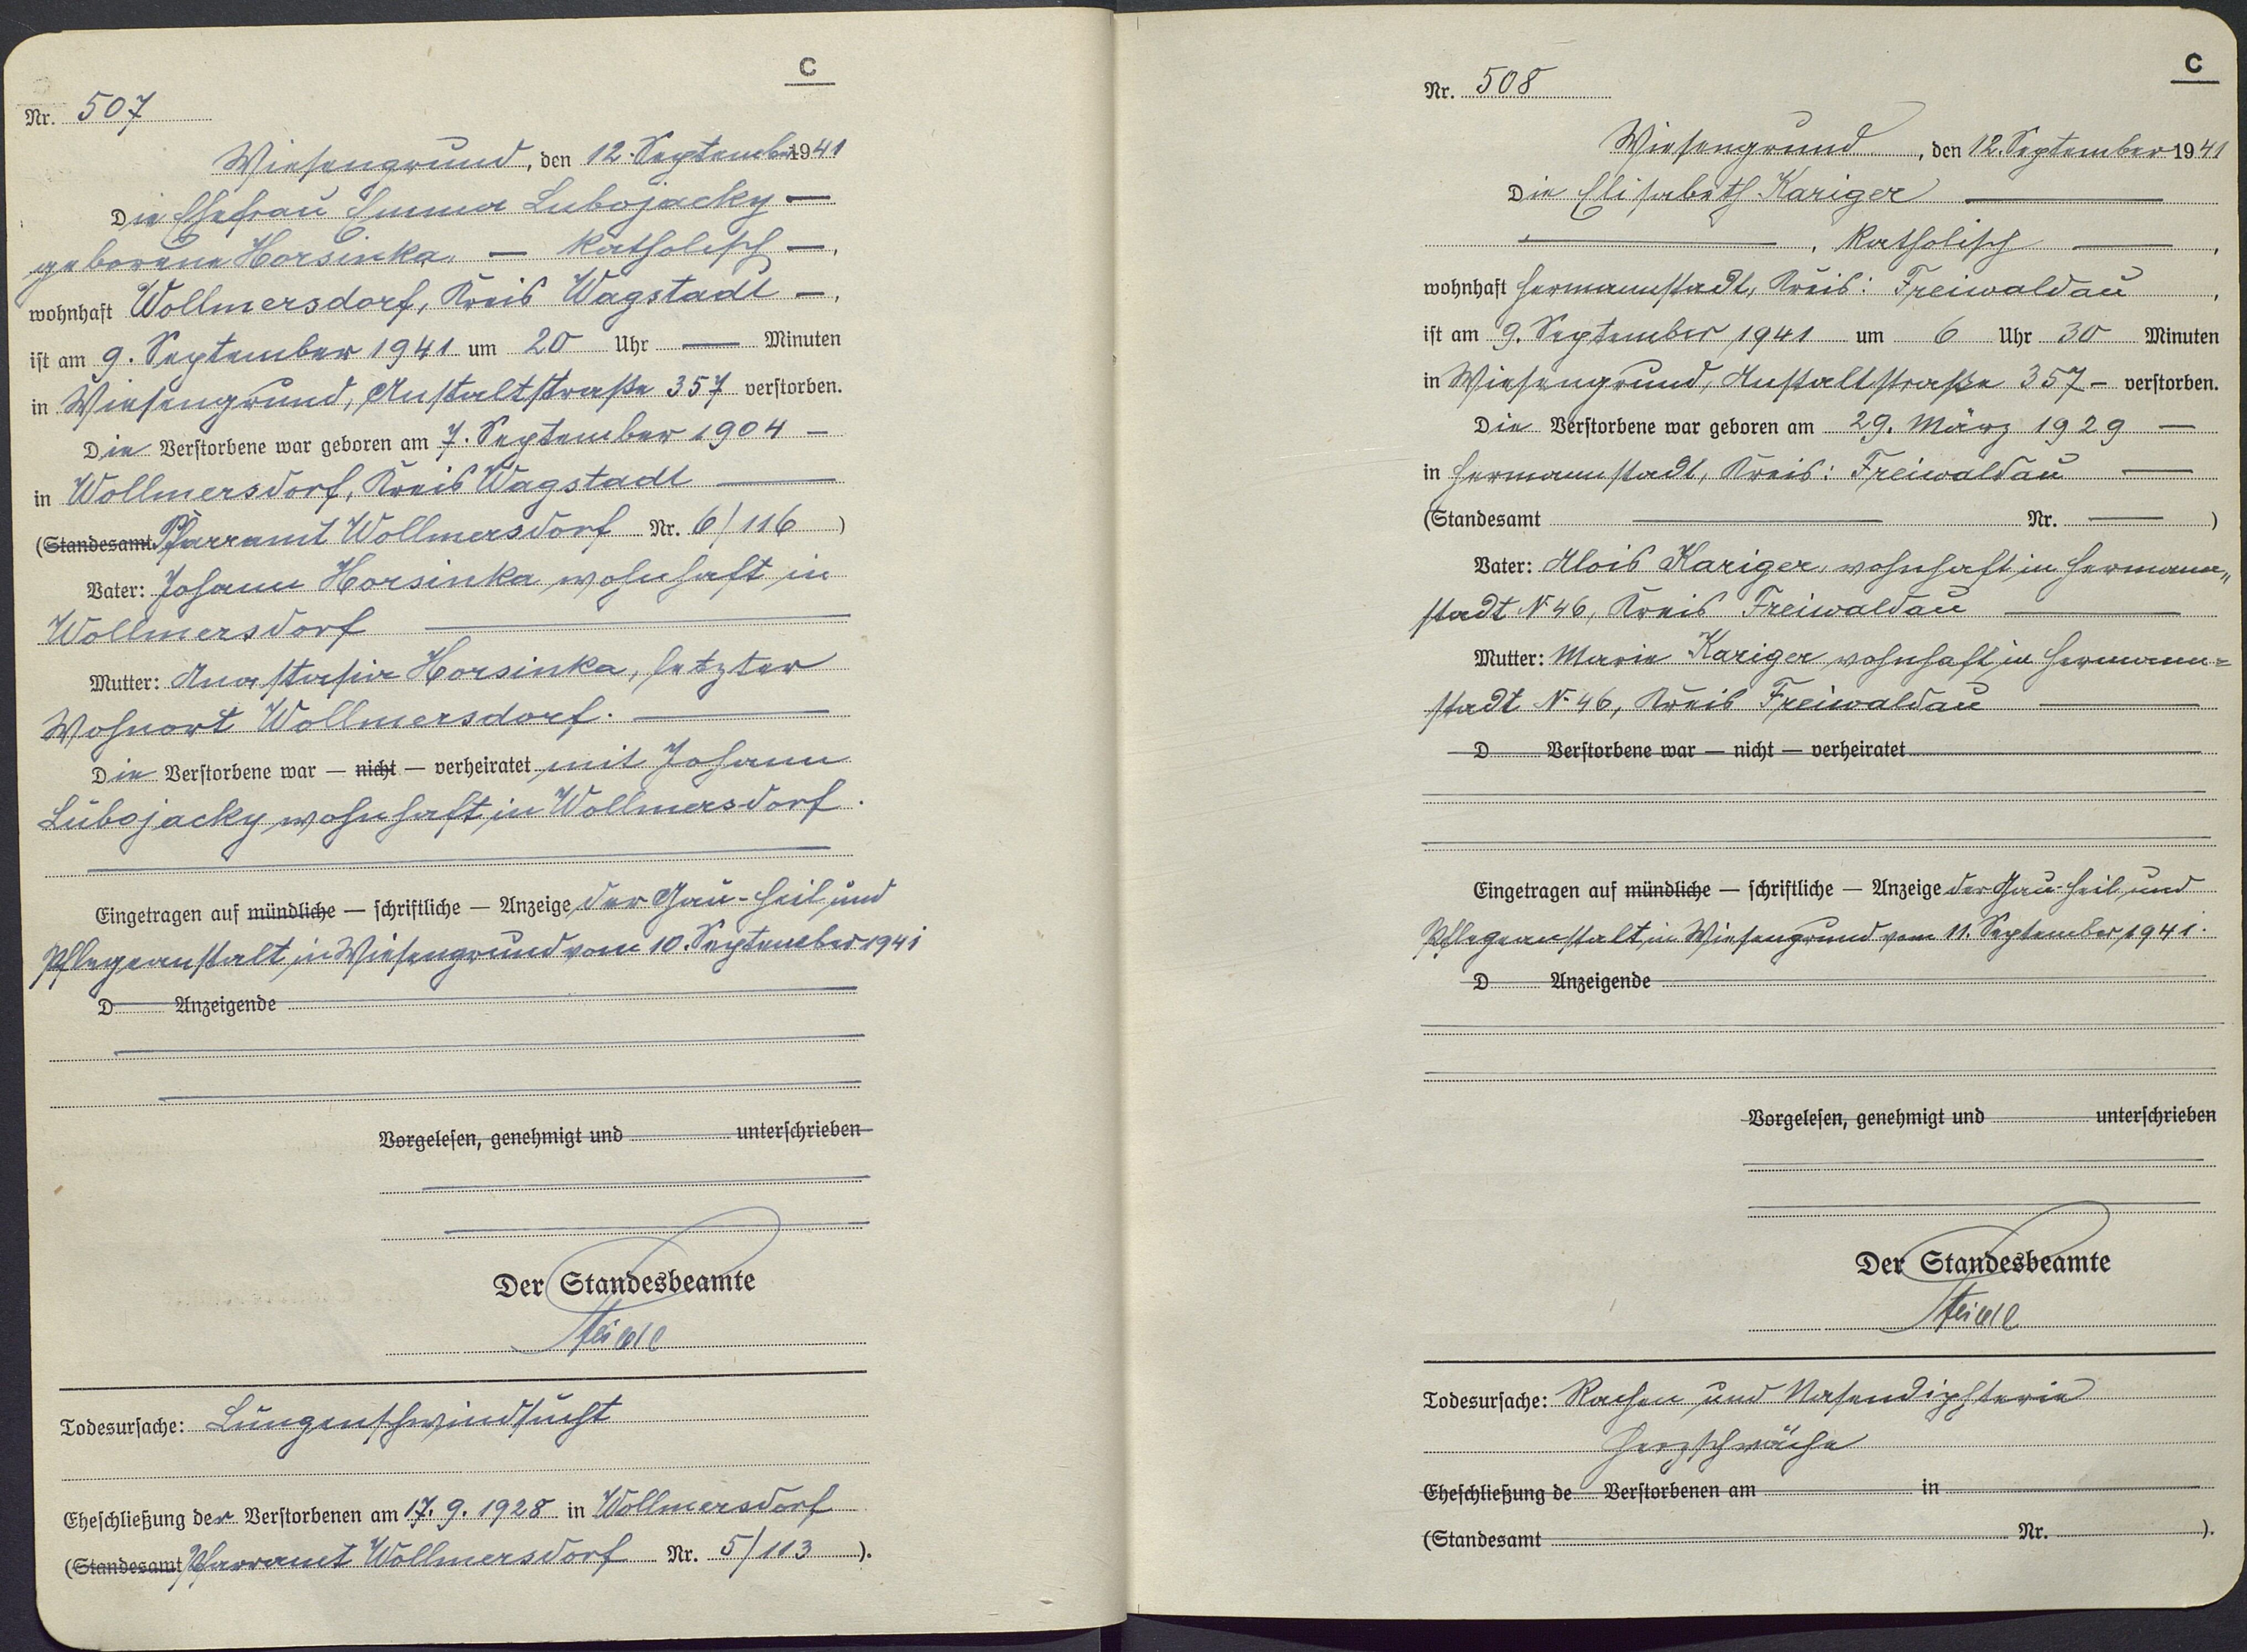 C
Nr. 507
Wiesengrund, den 12. September 1941
Die Ehefrau Emma Lubojacky —
geborene Horsinka, — katholisch —,
wohnhaft Wollmersdorf, Kreis Wagstadt —,
ist am 9. September 1941 um 20 Uhr — Minuten
in Wiesengrund, Anstaltstraße 357 verstorben.
Die Verstorbene war geboren am 7. September 1904 —
in Wollmersdorf, Kreis Wagstadt —
(Standesamt Pfarramt Wollmersdorf Nr. 6/116 )
Vater: Johann Horsinka wohnhaft in
Wollmersdorf —
Mutter: Anastasia Horsinka, letzter
Wohnort Wollmersdorf. —
Die Verstorbene war — nicht — verheiratet mit Johann
Lubojacky wohnhaft in Wollmersdorf.
Eingetragen auf mündliche — schriftliche — Anzeige der Gau-Heil und
Pflegeanstalt in Wiesengrund vom 10. September 1941
D Anzeigende
Vorgelesen, genehmigt und unterschrieben
Der Standesbeamte
Todesursache: Lungenschwindsucht
Eheschließung der Verstorbenen am 17. 9. 1928 in Wollmersdorf
(Standesamt Pfarramt Wollmersdorf Nr. 5/113 ).
C
Nr. 508
Wiesengrund, den 12. September 1941
Die Elisabeth Kariger —
—, katholisch —,
wohnhaft Hermannstadt, Kreis: Freiwaldau,
ist am 9. September 1941 um 6 Uhr 30 Minuten
in Wiesengrund, Anstaltstraße 357 – verstorben.
Die Verstorbene war geboren am 29. März 1929 —
in Hermannstadt, Kreis: Freiwaldau —
(Standesamt — Nr. — )
Vater: Alois Kariger, wohnhaft in Hermann„
stadt № 46, Kreis Freiwaldau —
Mutter: Marie Kariger wohnhaft in Hermann=
stadt № 46, Kreis Freiwaldau —
D Verstorbene war — nicht — verheiratet
Eingetragen auf mündliche — schriftliche — Anzeige der Gau-Heil und
Pflegeanstalt in Wiesengrund vom 11. September 1941.
D Anzeigende
Vorgelesen, genehmigt und unterschrieben
Der Standesbeamte
Todesursache: Rachen und Nasendiphterie
Herzschwäche
Eheschließung de Verstorbenen am in
(Standesamt Nr. ).